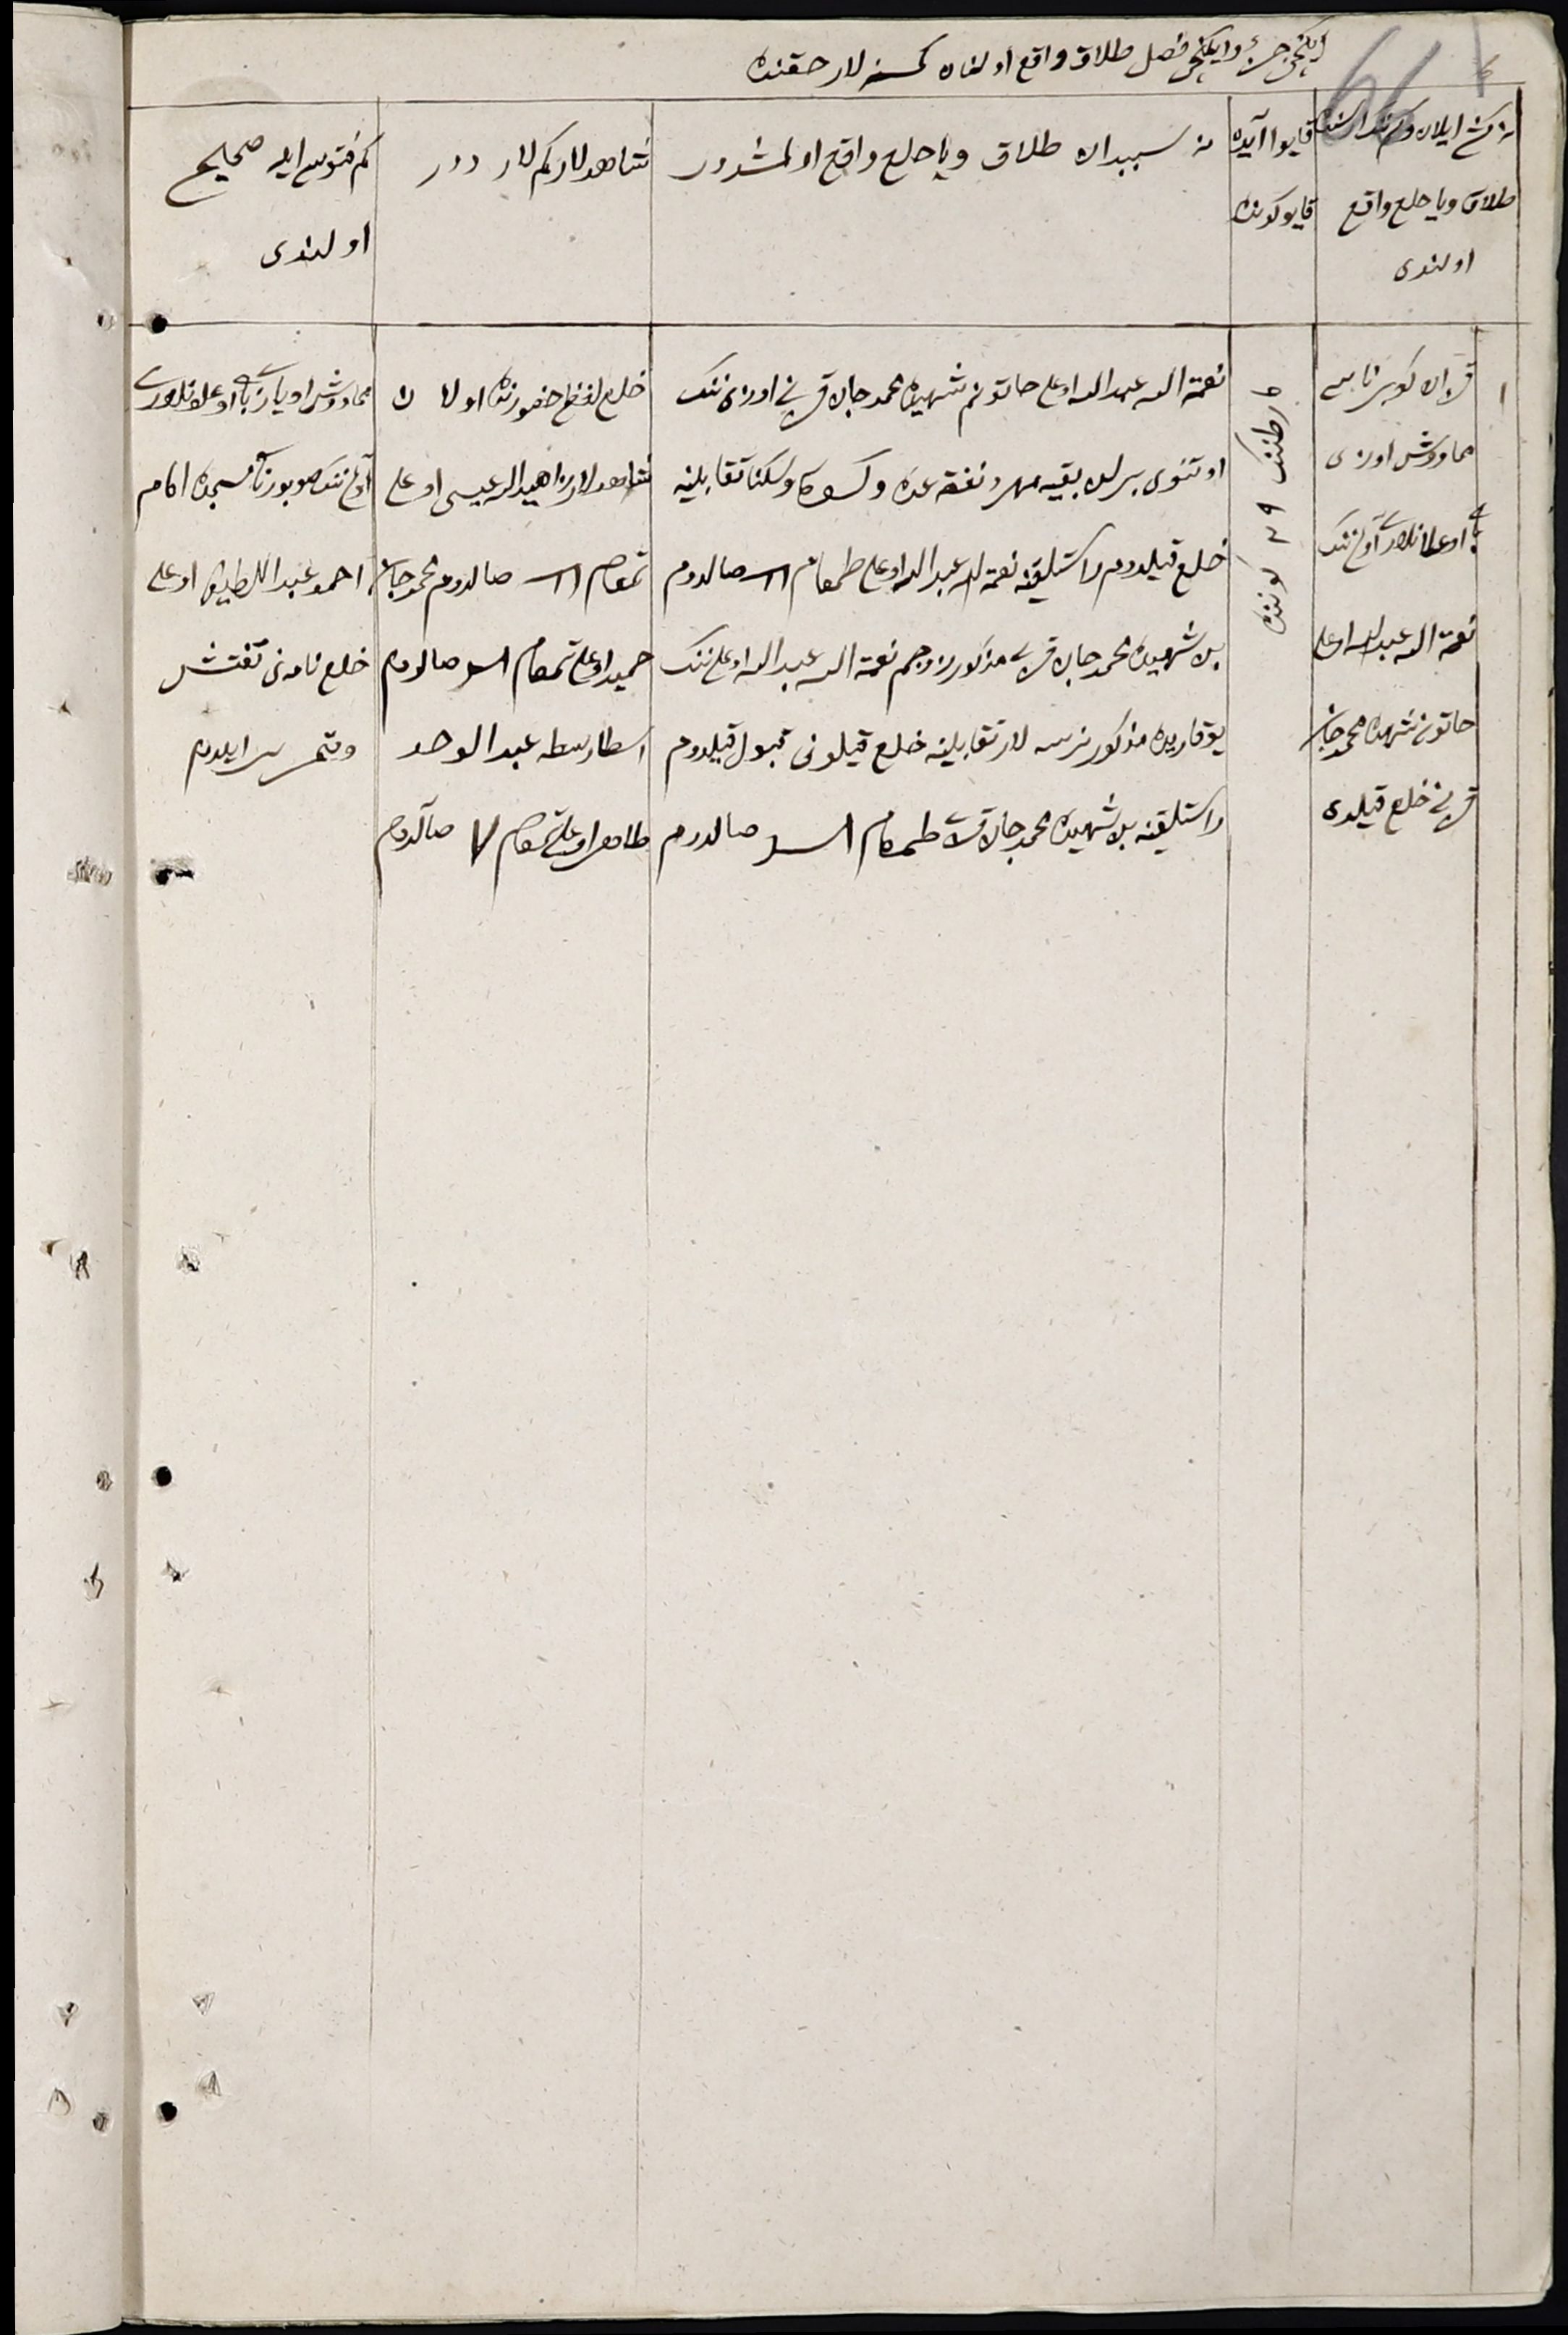 ایکنجی جزء و ایکنجی فصل طلاق واقع اولغان کمسنه لار حقنده
66
طلاق ویا خلع واقع
اولندی
قایو آیده
قایو کونده
نه سببدان طلاق ویا خلع واقع اولمشدور
شاهدلار کم لار دور
کم فتوسی ایله صحیح
اولندی
۱
قزان کوبرناسی
مماددش اویازی
اوغلانلاری آولی ننک
نعمة الله عبدالله اوغلی
خاتونی شهیده محمدجان
قزینی خلع قیلدی
مارطننک ۲۹ کوننده
نعمة الله عبدالله اوغلی خاتونم شهیده محمدجان قزینی اوزی ننک
اوتنوی برلن بقیه مهر و نفقه عده و کسوه و سکنا تقابلینه
خلع قیلدوم راستلیقنه نعمة الله عبدالله اوغلی طمغام صالدوم
بن شهیده محمدجان قزی مذکور زوجم نعمة الله عبدالله اوغلی ننک
یوقاریده مذکور نرسه لار تقابلینه خلع قیلونی قبول قیلدوم
راستلیقنه بن شهیده محمدجان قزی طمغام صالدوم
خلع لفظی حضورنده اولان
شاهدلار عیسی اوغلی
تمغام صالدوم محمدجان
حمید اوغلی تمغام صالدوم
عبدالوحد
طاهر اوغلی تمغام V صالدوم
مماددش اویازی اوغلانلاری
آولی ننک مسجده امام
احمد عبداللطیف اوغلی
خلع نامه نی تفتیش
وتحریر ایلدوم